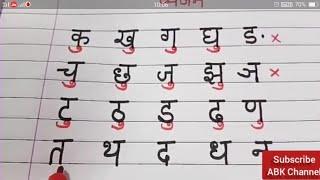 10:06
व्यंजन
कु खु गु घु ङ ×
चु छु जु झु ञ ×
टु ठु डु ढु णु
त थ द ध न
Subscribe
ABK Channel